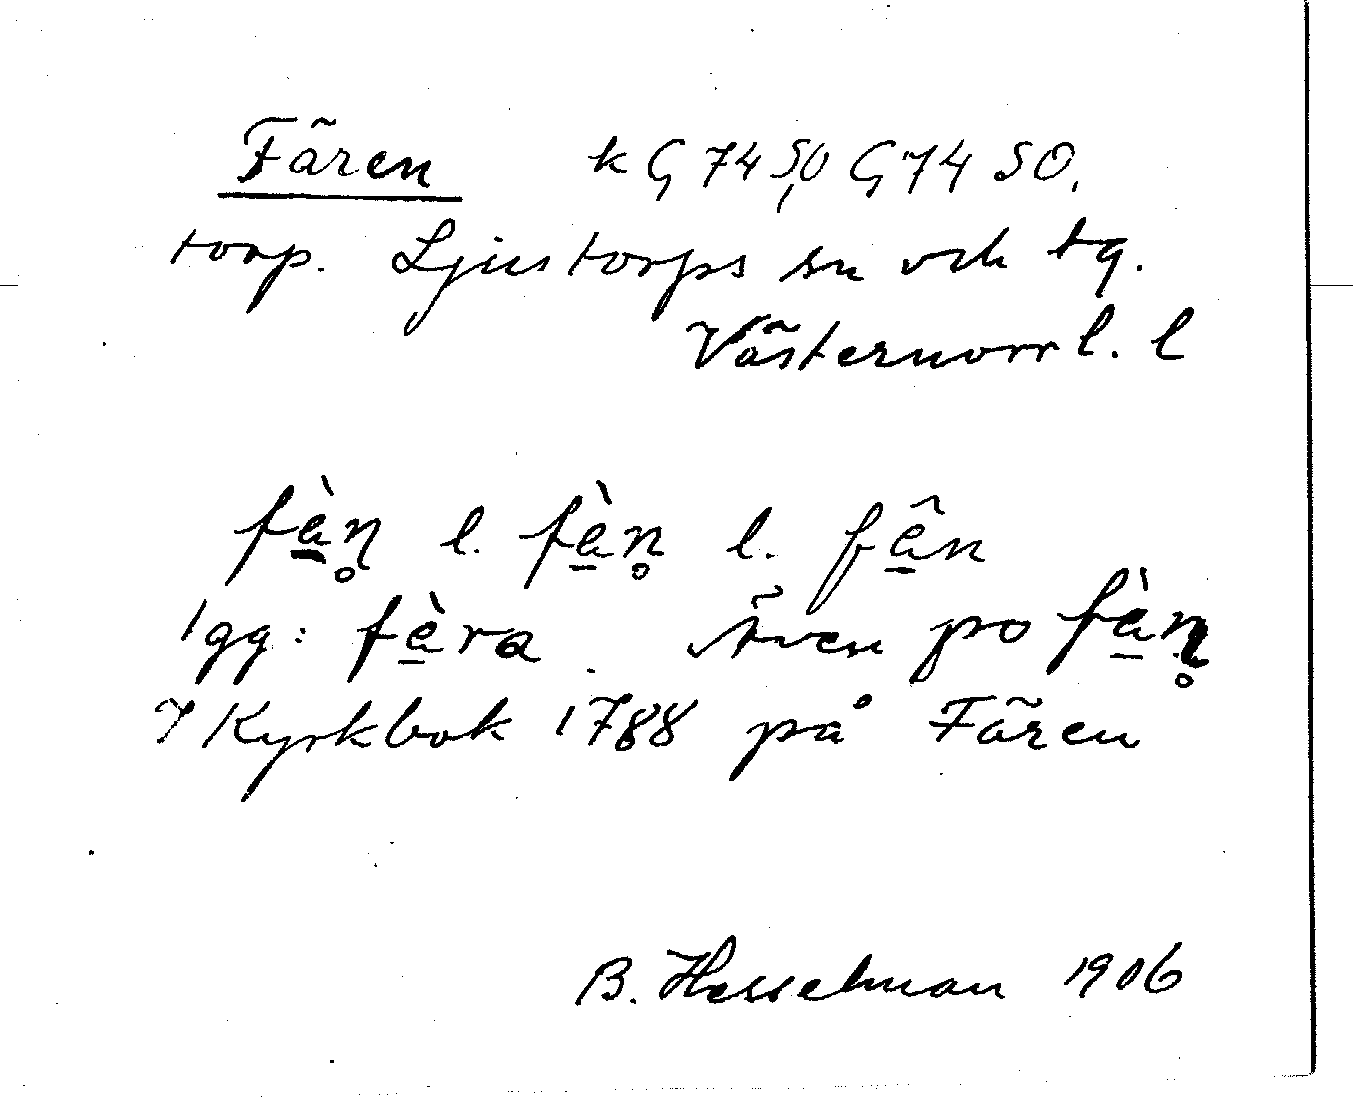 Fären k G 74 50 G 74 SO.
torp. Ljustorps sn och tg.
Västernorrl. l
fè̠n̥ l. fè̠n̥ l. fê̠n
1gg: fè̠ra. Även po fè̠n̥
I Kyrkbok 1788 på Fären
B. Hesselman 1906